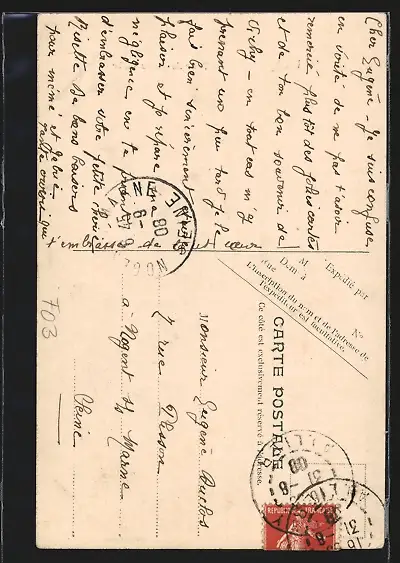 Cher Eugène - Je suis confuse
en vérité de ne pas t'avoir
remercié plus tôt des jolies cartes
et de ton bon souvenir de
Clichy - en tout cas m'y
prenant un peu tard je le
fais bien sincèrement
plaisir et je répare
négligence en te
d'embrasser votre petite
Misette de bons baisers
pour mémé et
que
t'embrasse de tout cœur
703
CARTE POSTALE
Ce côté est exclusivement réservé à l'adresse.
M
Expédié par
Dem. à
Rue
N°
L'inscription du nom et de l'adresse de
l'expéditeur est facultative.
Monsieur Eugène Duclos
2 rue Plisson
à Nogent s/ Marne
Seine
SEINE
08
REPUBLIQUE FRANÇAISE
08
31